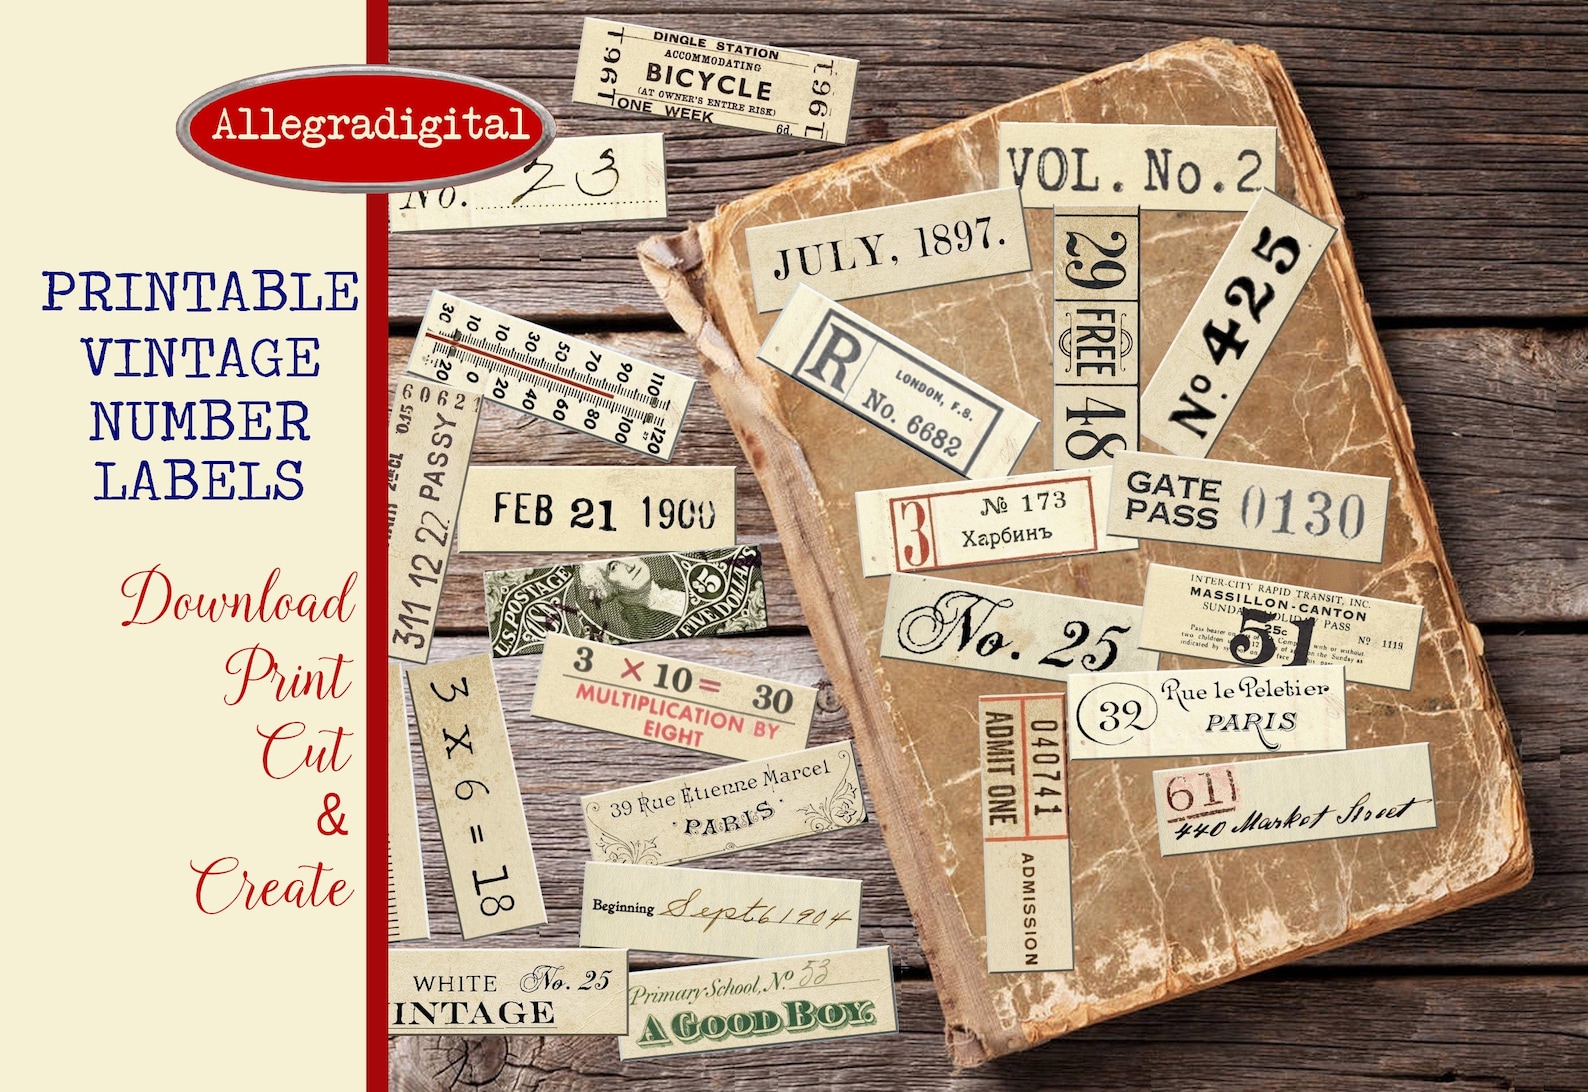 Allegradigital
PRINTABLE
VINTAGE
NUMBER
LABELS
Download
Print
Cut
&
Create
1961
DINGLE STATION
ACCOMMODATING
BICYCLE
(AT OWNER'S ENTIRE RISK)
ONE WEEK
6d.
1961
No. 23
VOL. No. 2
JULY, 1897.
29
FREE
48
No. 425
R
LONDON, F.S.
No. 6682
30 10 10 30 50 70 90 110
20 0 20 40 60 80 100 120
6062
.015
311 12 22 PASSY
2me CL
FEB 21 1900
3
№ 173
Харбинъ
GATE
PASS
0130
U.S. POSTAGE
5
FIVE DOLLARS
No. 25
INTER-CITY RAPID TRANSIT, INC.
MASSILLON-CANTON
25c
51
Nº 1119
3 X 10 = 30
MULTIPLICATION BY
EIGHT
32
Rue le Peletier
PARIS
3 X 6 = 18
040741
ADMIT ONE
ADMISSION
39 Rue Etienne Marcel
PARIS
611
440 Market Street
Beginning Sept 6 1904
WHITE No. 25
INTAGE
Primary School, No. 53
A GOOD BOY.